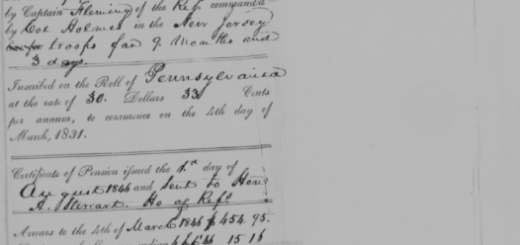 by Captain Fleming of the Regt command'd
by Col Holmes in the New Jersey
troops for 9 months and
3 days.
Inscribed on the Roll of Pennsylvania
at the rate of 30 Dollars 33 Cents
per annum, to commence on the 4th day of
March, 1831.
Certificate of Pension issued the 1st day of
August 1846 and Sent to Hon
A. Stewart. Ho of Reps
Arrears to the 4th of March 1846 $454.95
15 16